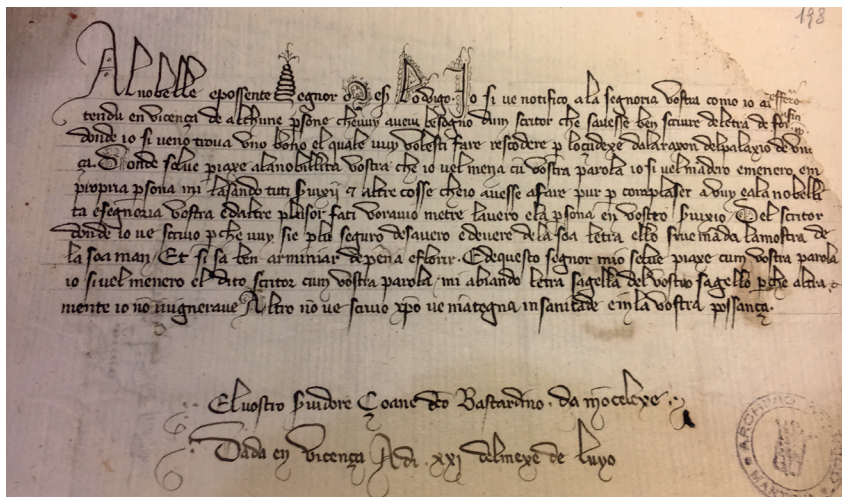 198
Al nobelle e possente Segnor Ser Rodrigo. Io si ve notifico a la segnoria vostra como io ai
tendu en vicença de alchune psone che vuy aveu besogno dun scritor che savesse ben scrivere de letra de for
donde io si veno trova uno bono el quale vuy volesti fare rescodere p lo
ça. Donde selve piaxe ala nobillita vostra che io vel mena cu vostra parola io si vel madero e menero em
propria psona mi lasando tuti svixij & altre cosse che io avesse a fare pur p complaser a vuy e ala nobelli
ta e segnoria vostra e daltre plusor fati voravio metre lavero e la psona en vostro svixio Del scritor
donde io ve scrivo pche vuy sie plu seguro de savero e devere de la soa letra ello si ve mada la mostra de
la soa man. Et si sa ben arminiar de pena e florir. E de questo segnor mio selve piaxe cum vostra parola
io si vel menero el dito scritor cum vostra parola, mi abiando letra sagella del vostro sagello pche altra
mente io no vignerave Altro no ve scrivo xpo ve mategna in sanitade e in la vostra possança.
El vostro svidore Çoane dto Bastardino. da mocelexe
Dada en vicença Adi. xxi del mexe de luyo
ARCHIVIO